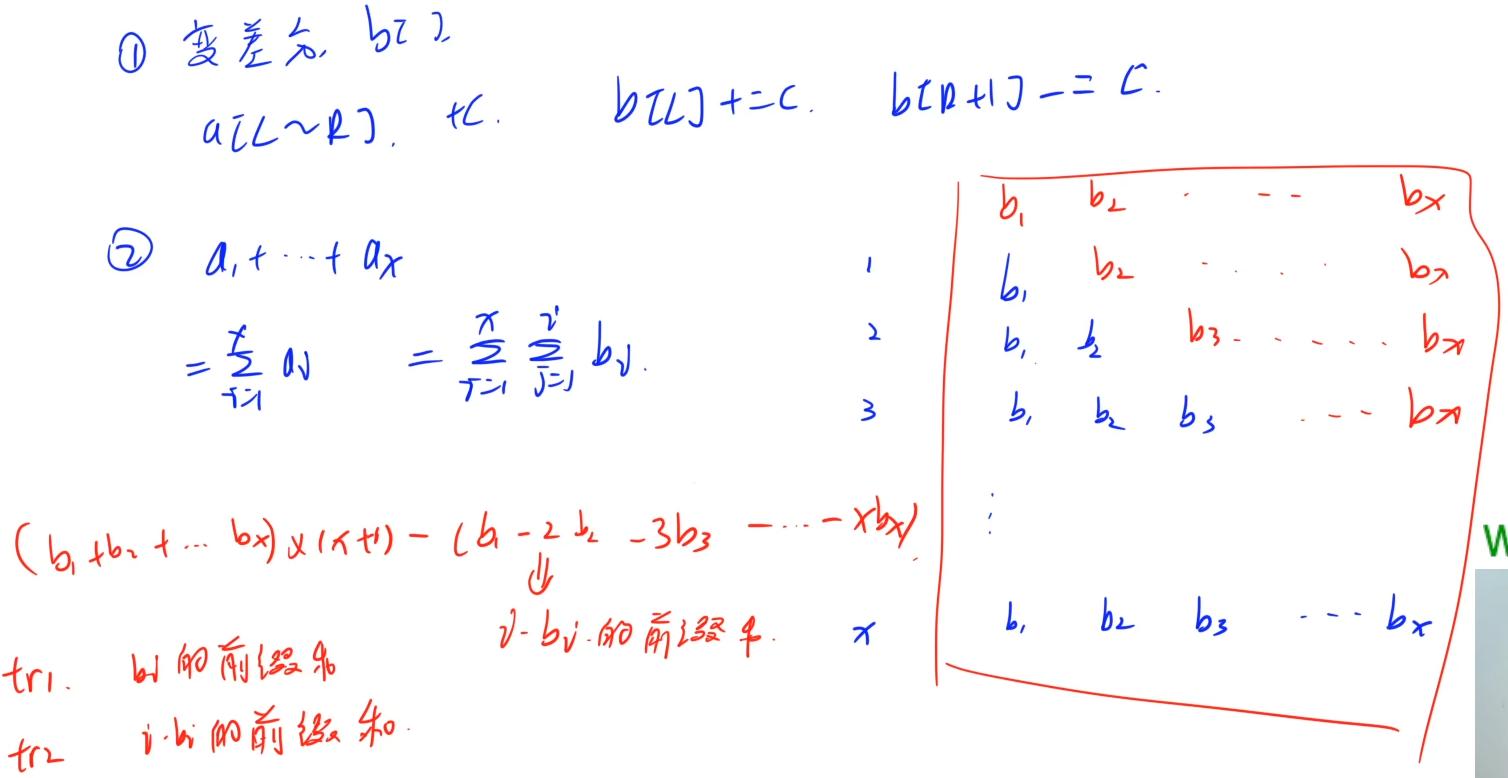 ① 变差分, b[ ].
a[L~R]. +C. b[L]+=C. b[R+1]-=C.
② a₁+…+aₓ
= Σᵢ₌₁ˣ aᵢ = Σᵢ₌₁ˣ Σⱼ₌₁ⁱ bⱼ.
b₁ b₂ · - - bₓ
1 b₁ b₂ · · · · bₓ
2 b₁ b₂ b₃ - · · · · · bₓ
3 b₁ b₂ b₃ · - - bₓ
⋮
x b₁ b₂ b₃ --- bₓ
(b₁+b₂+… bₓ)×(x+1) - (b₁ - 2b₂ - 3b₃ - … - xbₓ).
⇓
i·bᵢ.的前缀和.
tr1. bᵢ的前缀和
tr2 i·bᵢ的前缀和.
W